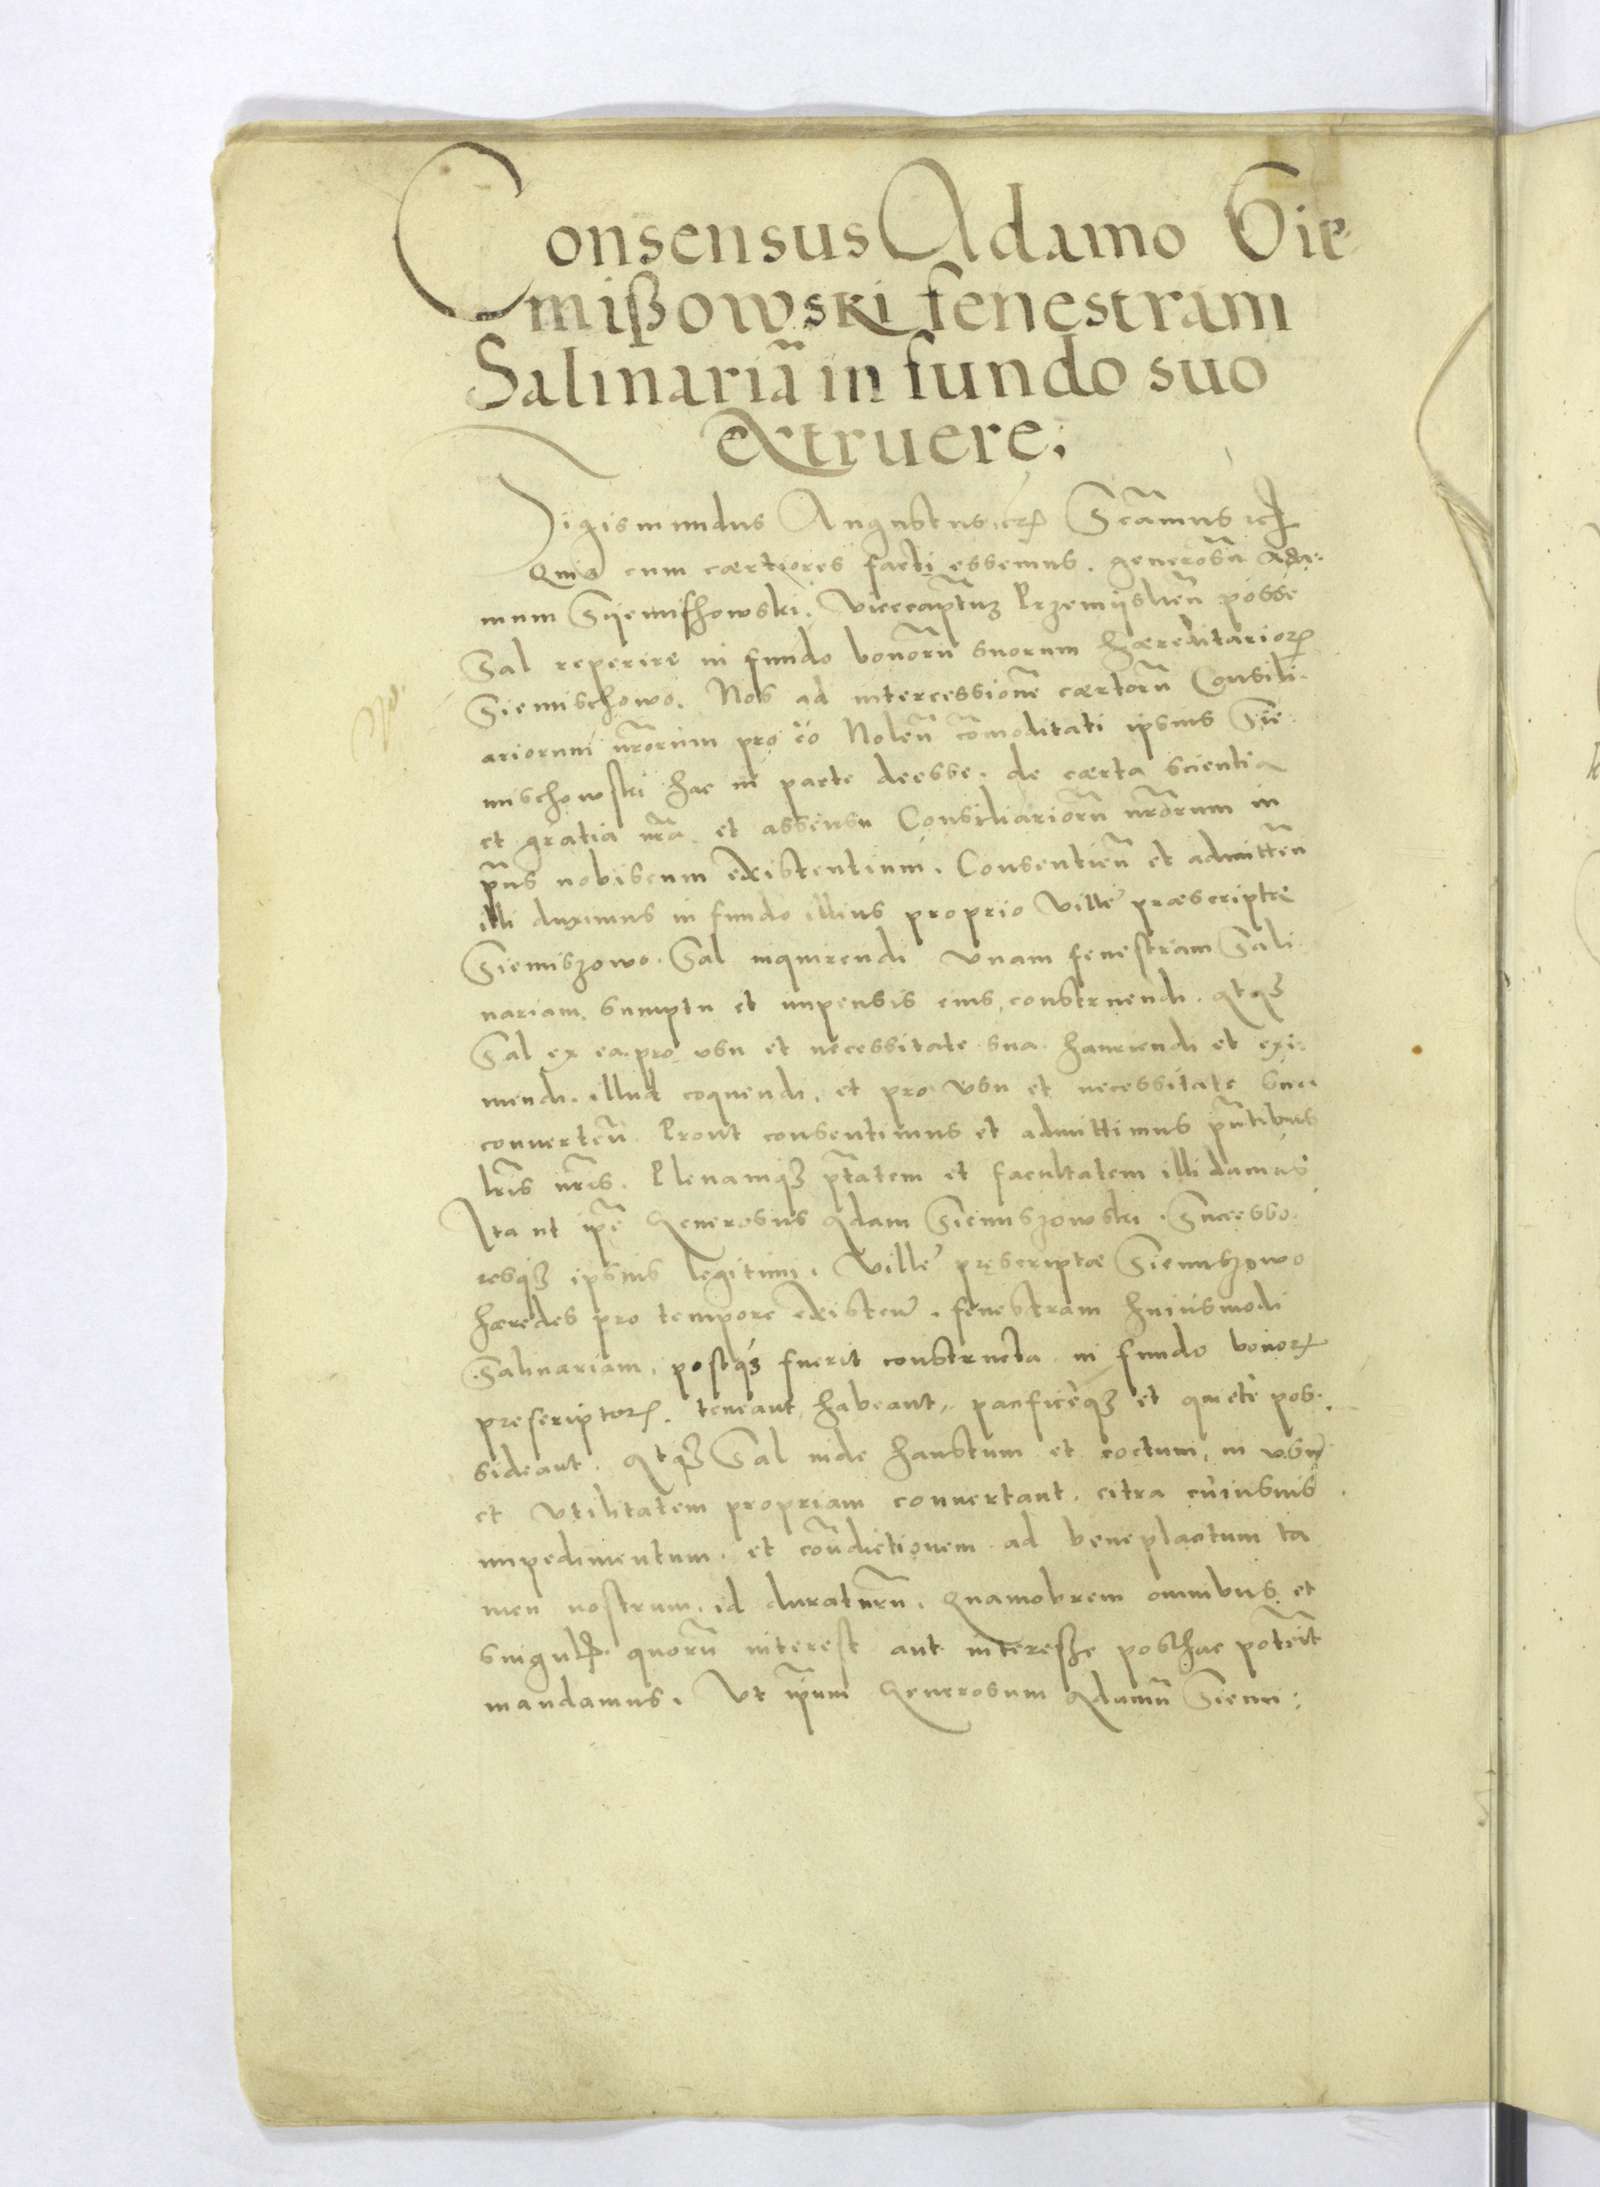 Consensus Adamo Sie
mißowski fenestram
Salinariã in fundo suo
extruere;
Sigismundus Augustus etc̃ Sc̃amus etc
Quia cum cærtiores facti essemus. generosũ Ada:
mum Syemischowski. Vicecaptuʒ Przemysliẽn posse
Sal reperire in fundo bonorũ suorum hæreditarioꝝ
Siemischowo. Nos ad intercessionẽ cærtorũ Consili-
ariorum nr̃orum pro eo Nolẽn cõmoditati ipsius Sie
mischowski hac in parte deesse. de cærta scientia
et gratia nr̃a. et assensu Consiliariorũ nr̃orum in
pñs nobiscum existentium. Consentiẽn et admittẽn
illi duximus in fundo illius proprio Villę præscriptæ
Siemiszowo. Sal inquirendi Vnam fenestram Sali
nariam, sumptu et impensis eius construendi. Atqʒ
Sal ex ea pro vsu et necessitate sua hauriendi et exi-
mendi. illud coquendi. et pro vsu et necessitate sua
conuertẽn. Prout consentimus et admittimus pñtibus
lr̃is nr̃is. Plenamqʒ ptãtem et facultatem illi damus
Ita ut ip̃e Generosus Adam Siemiszowski. Successo-
resqʒ ipsius legitimi. Villę pręscriptæ Siemiszowo
hæredes pro tempore existẽn. fenestram huiusmodi
Salinariam. postqʒ fuerit constructa in fundo bonoꝝ
prescriptoꝝ. teneant habeant, pacificeqʒ et quiete pos-
sideant. Atqʒ Sal inde haustum et coctum, in vsũ
et Vtilitatem propriam conuertant. citra cuiusuis
impedimentum. et cõndictionem ad beneplacitum ta
men nostrum. id duraturũ. Quamobrem omnibus et
singulis quorũ interest aut interesse posthac potẽit
mandamus. Vt ip̃um Generosum Adamũ Siemi: